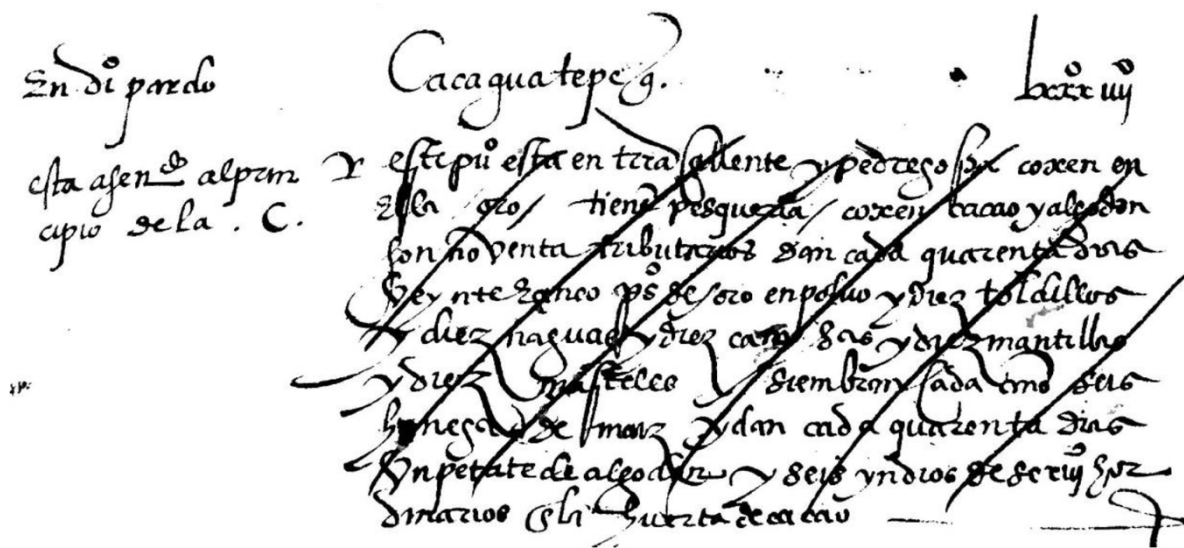 En di̊ pardo
esta asen^do al prin
cipio de la . C.
Cacaguatepeq.
lxxxiiijº
Y este puº esta en trra caliente y pedregosa coxen en
Ella oro / tiene pesqueria / coxen cacao y algodon
son noventa tributarios dan cada quarenta dias
Veynte zinco pºs de oro en polvo y diez toldillos
y diez naguas y diez camisas y diez mantillas
y diez masteles y siembran cada año seis
hanegas de maiz y dan cada quarenta dias
Un petate de algodon y seis yndios de serviº hor
dinarios en la huerta de cacao